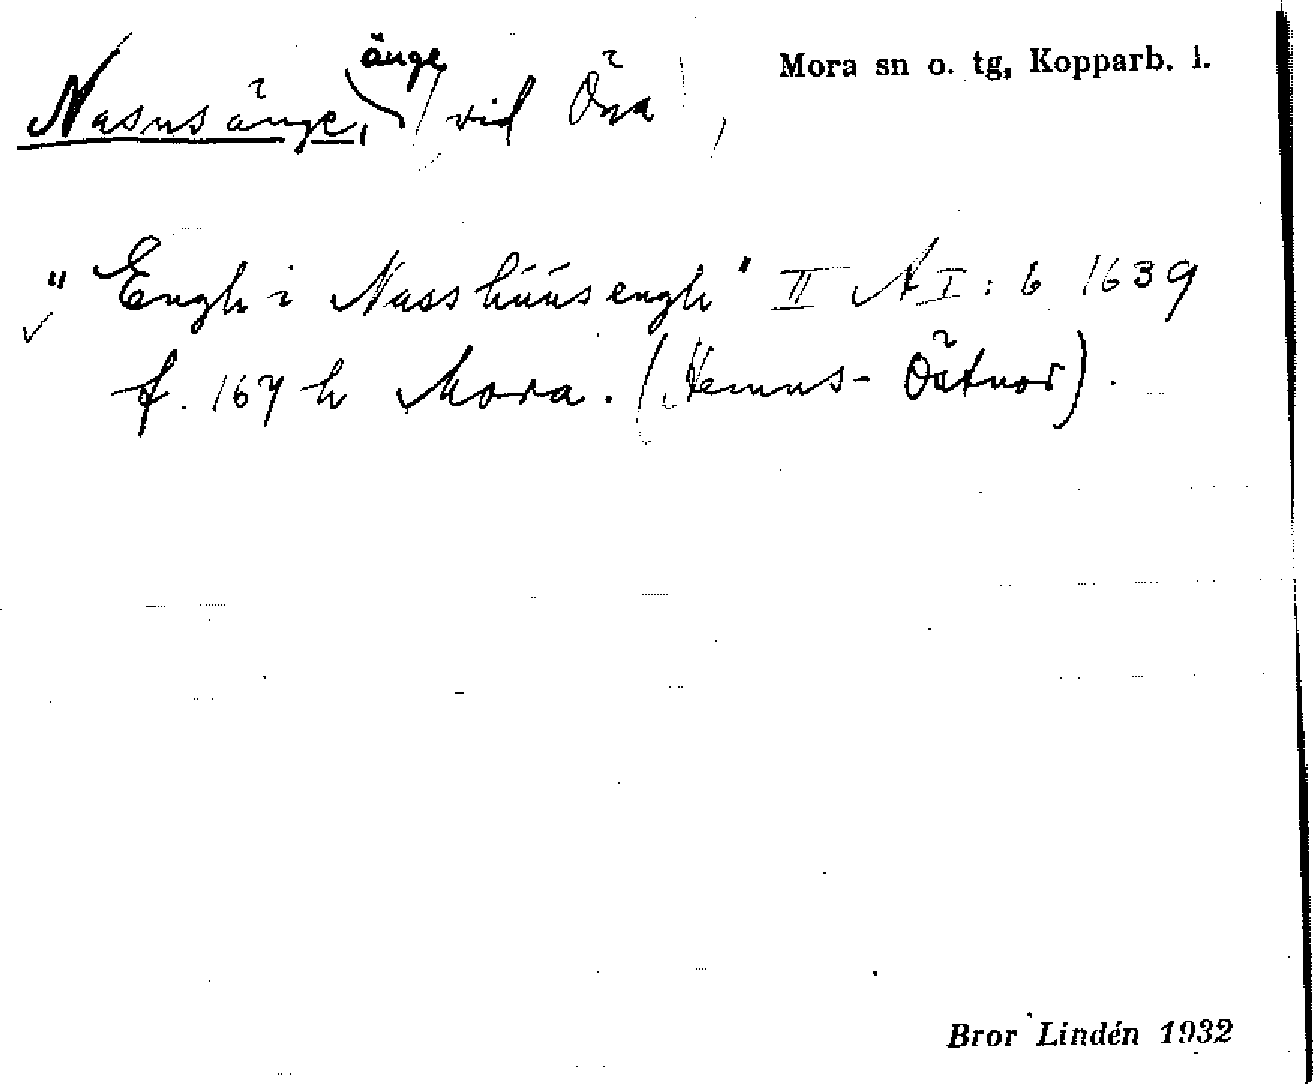 Mora sn o. tg, Kopparb. l.
Nasusänge, änge vid Öna,
"Engh i Nasshúúsengh" II A I: 6 1639
f. 167 h Mora. (Hemus- Östnor).
Bror Lindén 1932